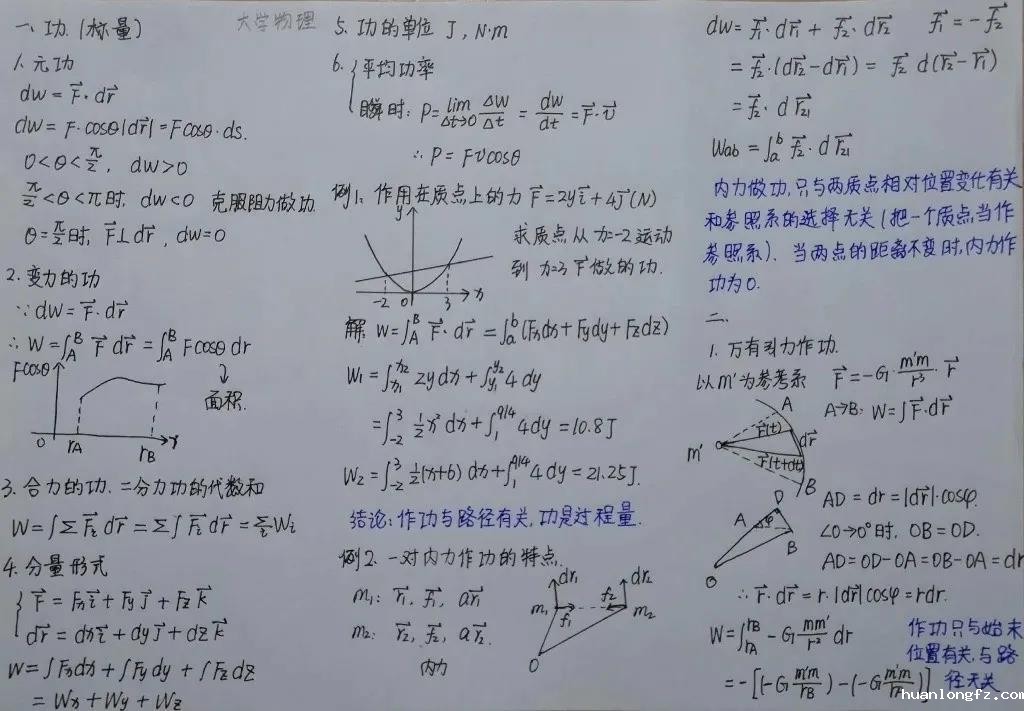 大学物理
一、功.(标量)
1.元功
dw = F⃗·dr⃗
dw = F·cosθ|dr⃗| = Fcosθ·ds.
0<θ<π/2, dw>0
π/2<θ<π时, dw<0 克服阻力做功.
θ=π/2时, F⃗⊥dr⃗, dw=0
2.变力的功
∵dw=F⃗·dr⃗
∴ W=∫_A^B F⃗ dr⃗ = ∫_A^B Fcosθ dr
↓
面积.
Fcosθ
0 rA rB r
3.合力的功.=分力功的代数和
W=∫ΣF⃗i dr⃗ = Σ∫F⃗i dr⃗ = Σi Wi
4.分量形式
F⃗=Fxi⃗+Fyj⃗+Fzk⃗
dr⃗=dxi⃗+dyj⃗+dzk⃗
W=∫Fxdx+∫Fydy+∫Fzdz
= Wx+Wy+Wz
5.功的单位 J, N·m
6. 平均功率
瞬时: P=lim Δt→0 ΔW/Δt = dw/dt = F⃗·v⃗
∴ P=Fvcosθ
例1. 作用在质点上的力 F⃗=2yi⃗+4j⃗(N)
求质点从 x=-2运动
到 x=3 F⃗做的功.
y
-2 0 3 x
解: W=∫_A^B F⃗·dr⃗ = ∫_a^b(Fxdx+Fydy+Fzdz)
W1=∫_x1^x2 2ydx+∫_y1^y2 4dy
=∫_-2^3 1/2x² dx+∫_1^9/4 4dy=10.8J
W2=∫_-2^3 1/2(x+6)dx+∫_1^9/4 4dy=21.25J.
结论:作功与路径有关,功是过程量.
例2. 一对内力作功的特点.
m1: r⃗1, f⃗1, dr⃗1
m2: r⃗2, f⃗2, dr⃗2.
内力
dr1 dr2
m1 f1 f2 m2
O
dw=f⃗1·dr⃗1+f⃗2·dr⃗2 f⃗1=-f⃗2
=f⃗2·(dr⃗2-dr⃗1)=f⃗2 d(r⃗2-r⃗1)
=f⃗2·dr⃗21
Wab=∫_a^b f⃗2·dr⃗21
内力做功,只与两质点相对位置变化有关
和参照系的选择无关(把一个质点当作
参照系). 当两点的距离不变时,内力作
功为0.
二、
1.万有引力作功.
以m'为参考系 F⃗=-G·m'm/r³·r⃗
A→B: W=∫F⃗·dr⃗
A
r⃗(t) dr⃗
m'
r⃗(t+dt)
B
D
A φ
B
O
AD=dr=|dr⃗|·cosφ.
∠O→0°时, OB=OD.
AD=OD-OA=OB-OA=dr
∴r⃗·dr⃗=r·|dr⃗|cosφ=rdr.
W=∫_rA^rB -G mm'/r² dr
=-[(-G m'm/rB)-(-G m'm/rA)]
作功只与始末
位置有关,与路
径无关
huanlongfz.com